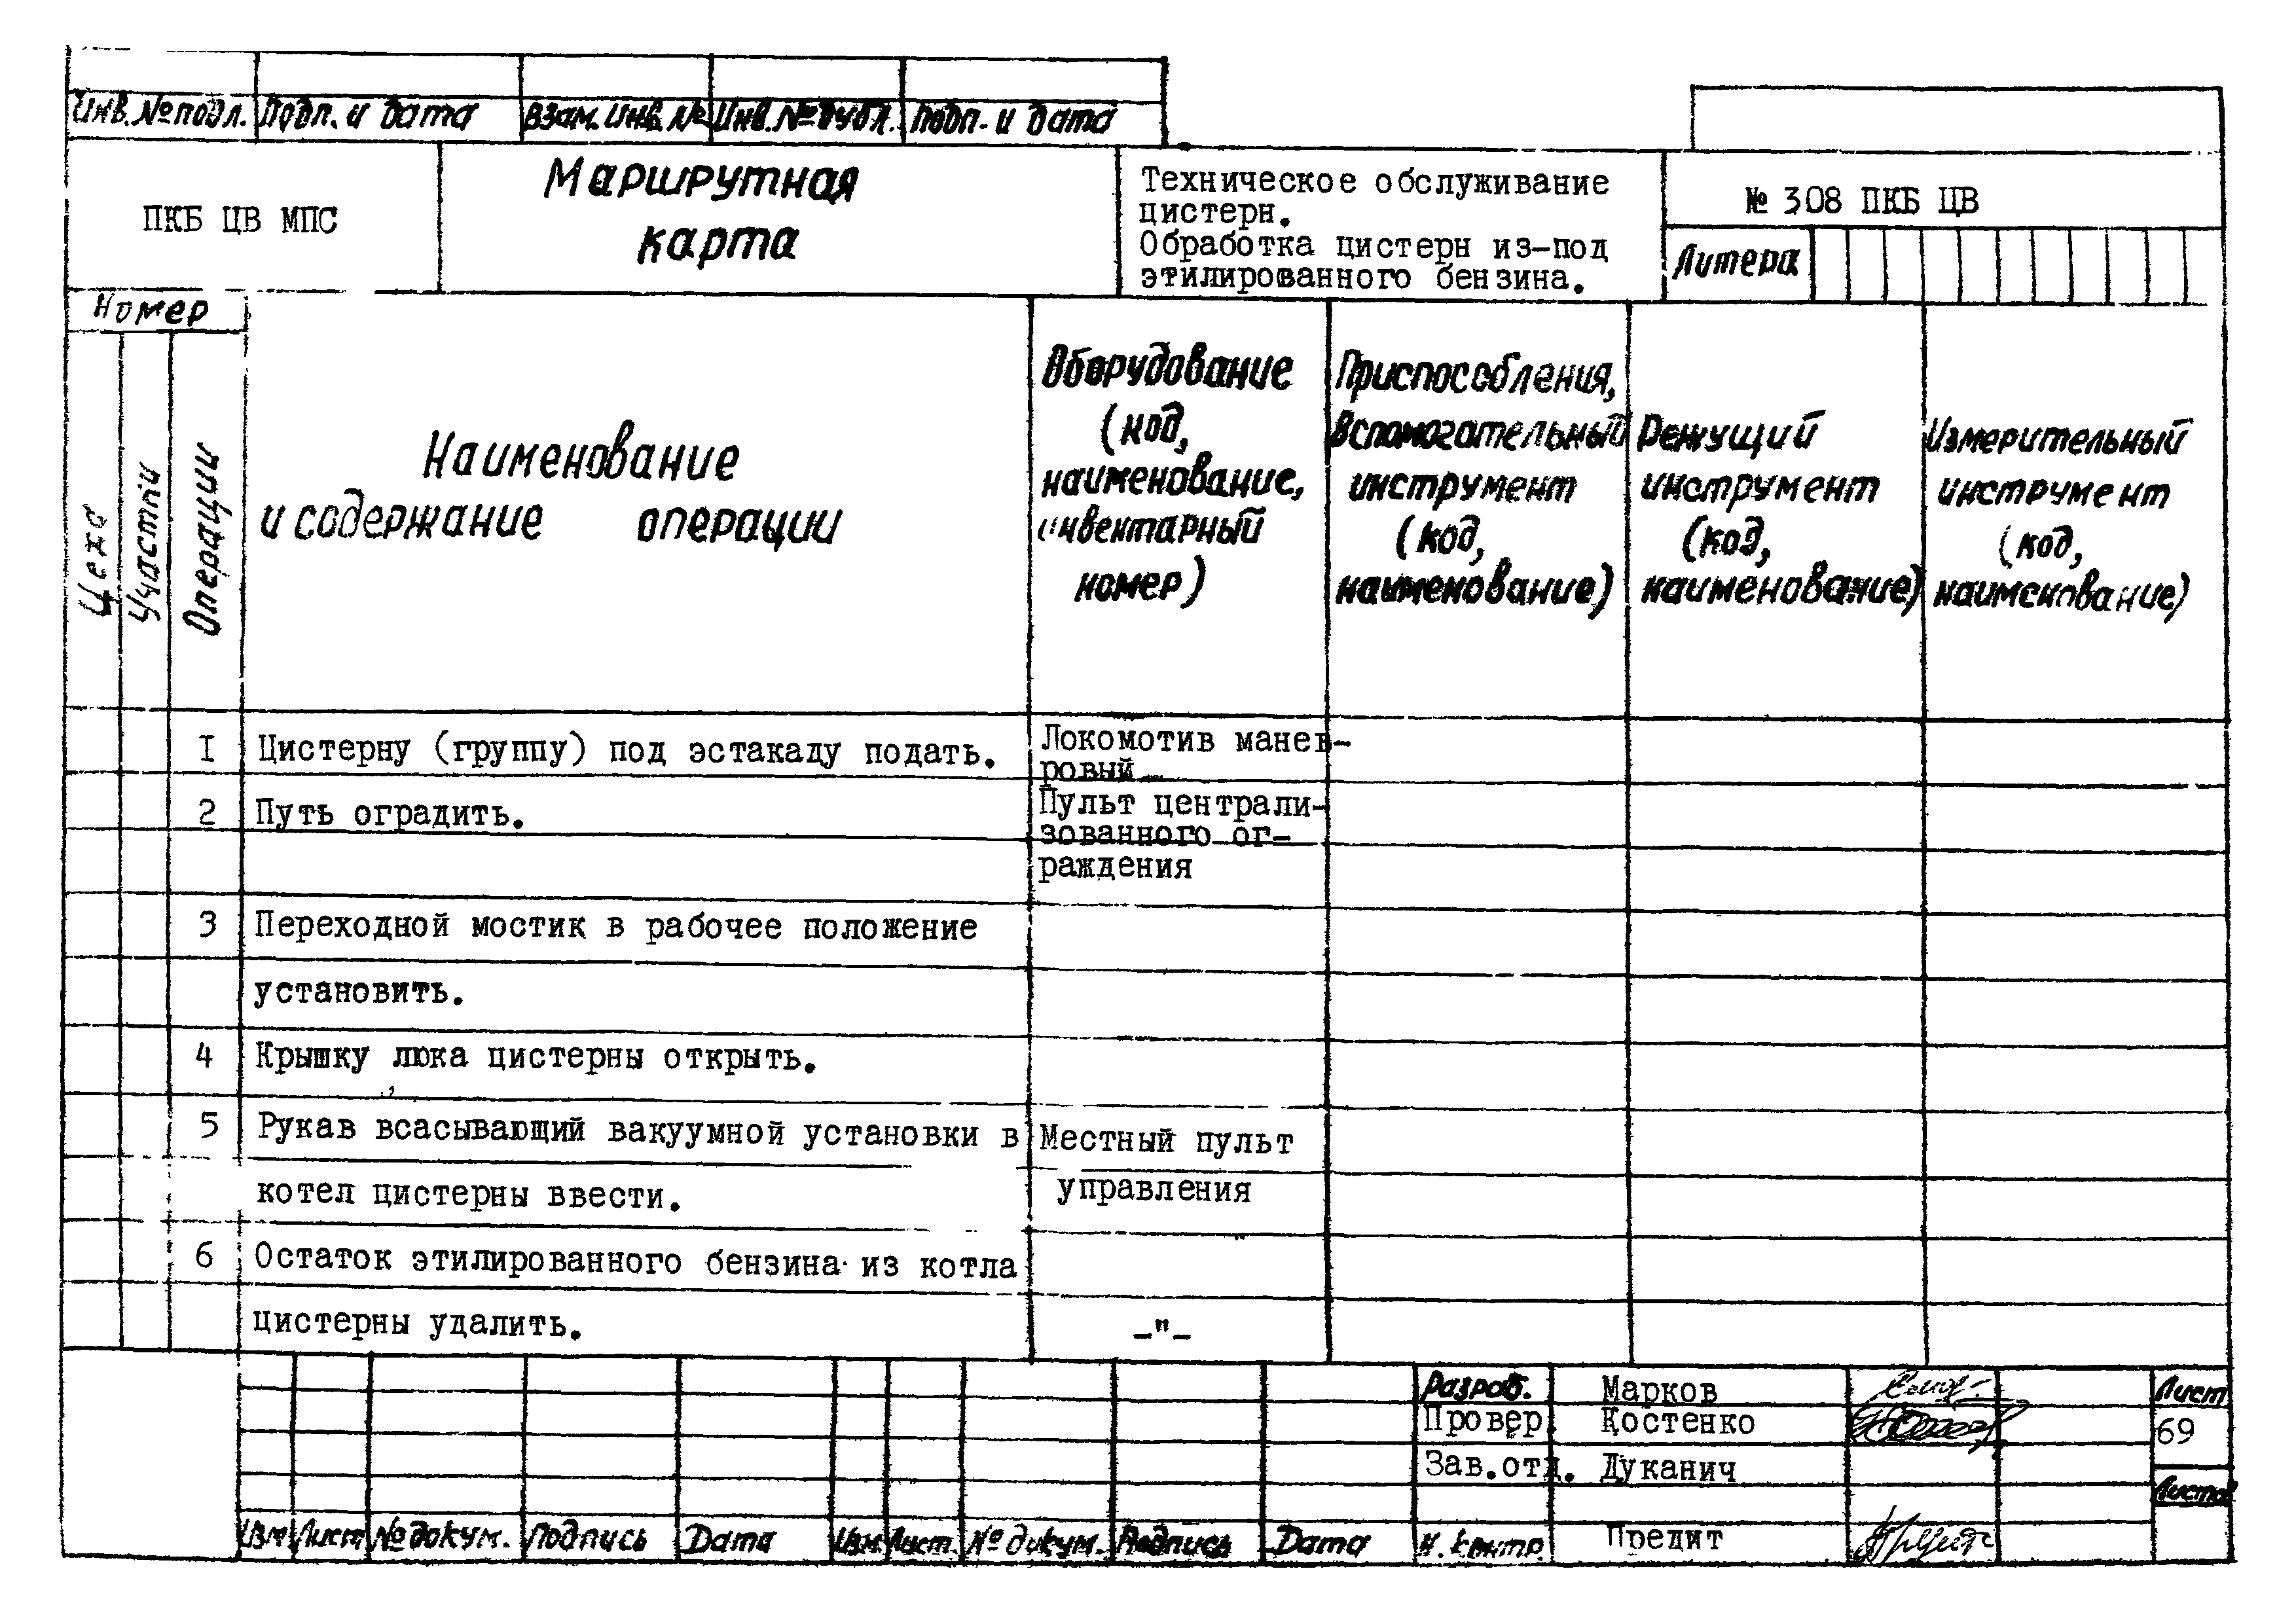 Инв. № подл. Подп. и дата Взам. Инв. № Инв. № дубл. Подп. и дата
ПКБ ЦВ МПС
Маршрутная
карта
Техническое обслуживание
цистерн.
Обработка цистерн из-под
этилированного бензина.
№ 308 ПКБ ЦВ
Литера
Номер
Цеха
Участка
Операции
Наименование
и содержание операции
Оборудование
(код,
наименование,
инвентарный
номер)
Приспособления,
Вспомогательный
инструмент
(код,
наименование)
Режущий
инструмент
(код,
наименование)
Измерительный
инструмент
(код,
наименование)
I Цистерну (группу) под эстакаду подать. Локомотив манев-
ровый
2 Путь оградить. Пульт централи-
зованного ог-
раждения
3 Переходной мостик в рабочее положение
установить.
4 Крышку люка цистерны открыть.
5 Рукав всасывающий вакуумной установки в Местный пульт
котел цистерны ввести. управления
6 Остаток этилированного бензина из котла
цистерны удалить. -"-
Разраб. Марков Лист
Провер. Костенко 69
Зав.отд. Дуканич
Листов
Изм Лист № докум. Подпись Дата Изм Лист. № докум. Подпись Дата Н. контр. Предит